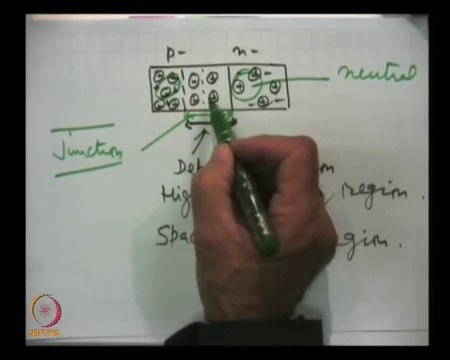 p- n-
neutral
Junction
De
Hig region.
Spac gion.
NPTEL